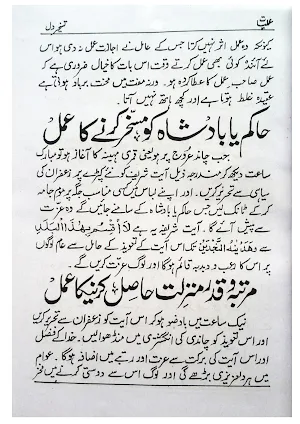 عملیات تسخیر دل
کیونکہ وہ عمل اثر نہیں کرتا جس کے عامل نے اجازت عمل نہ دی ہو اس
لئے آئندہ کوئی بھی عمل کرتے وقت اس بات کا خیال ضروری ہے کہ
عمل صاحب عمل کا عطا کردہ ہو۔ ورنہ مفت میں محنت برباد ہوتی ہے
عقیدہ غلط ہوتا ہے اور کچھ ہاتھ نہیں آتا۔
حاکم یا بادشاہ کو مسخر کرنے کا عمل
جب چاند عروج پر ہو یعنی قمری مہینہ کا آغاز ہو تو مبارک
ساعت دیکھ کر مندرجہ ذیل آیت شریف کو نئے کپڑے پر زعفران کی
سیاہی سے تحریر کریں۔ اور اپنے لباس میں کسی مناسب جگہ پر موم جامہ
کر کے ٹانک لیں جس حاکم یا بادشاہ کے سامنے جائیں گے وہ عزت
سے پیش آئے گا۔ آیت شریف یہ ہے لَا أُقْسِمُ بِهٰذَا الْبَلَدِ
سے وَهَدَيْنٰهُ النَّجْدَيْنِ تک اس آیت کے تعویذ کے حامل سے عام لوگوں
پر اس کا رعب و دبدبہ قائم ہوگا اور لوگ عزت کریں گے۔
مرتبہ و قدر و منزلت حاصل کرنیکا عمل
نیک ساعت میں باوضو ہو کر اس آیت کو زعفران سے تحریر کریں
اور اس تعویذ کو چاندی کی انگشتری میں منڈھوالیں۔ خدا کے فضل
اور اس آیت کی برکت سے عزت اور رتبے میں اضافہ ہوگا۔ عوام
میں ہر دلعزیزی بڑھے گی اور لوگ اس سے دوستی کرنے میں فخر